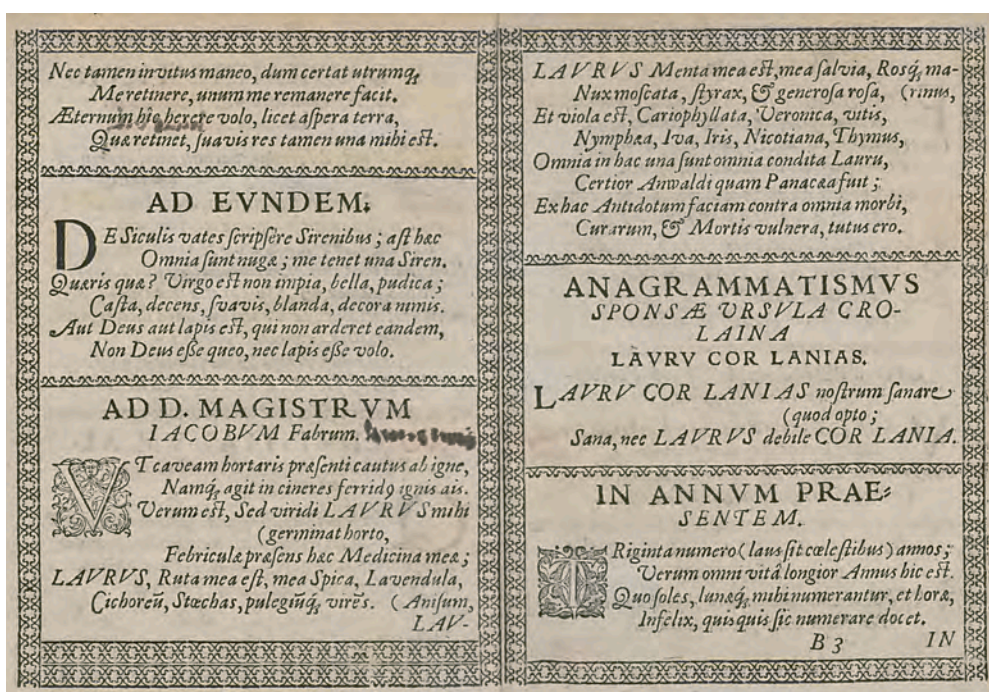 Nec tamen invitus maneo, dum certat utrumq́;
Me retinere, unum me remanere facit.
Æternum hic herere volo, licet aspera terra,
Quæ retinet, suavis res tamen una mihi est.
AD EVNDEM;
DE Siculis vates scripsêre Sirenibus; ast hæc
Omnia sunt nugæ; me tenet una Siren.
Quæris quæ? Virgo est non impia, bella, pudica;
Casta, decens, suavis, blanda, decora nimis.
Aut Deus aut lapis est, qui non arderet eandem,
Non Deus esse queo, nec lapis esse volo.
AD D. MAGISTRVM
IACOBVM Fabrum.
VT caveam hortaris præsenti cautus ab igne,
Namq́; agit in cineres ferrida ignis ais.
Verum est, Sed viridi LAVRVS mihi
(germinat horto,
Febriculæ præsens hæc Medicina meæ;
LAVRVS, Ruta mea est, mea Spica, Lavendula,
Cichoreū, Stœchas, pulegiūq́; virēs. (Anisum,
LAV-
LAVRVS Menta mea est, mea salvia, Rosq́; ma-
Nux moscata, styrax, & generosa rosa, (rinus,
Et viola est, Cariophyllata, Veronica, vitis,
Nymphæa, Iva, Iris, Nicotiana, Thymus,
Omnia in hac una sunt omnia condita Lauru,
Certior Anwaldi quam Panacæa fuit;
Ex hac Antidotum faciam contra omnia morbi,
Curarum, & Mortis vulnera, tutus ero.
ANAGRAMMATISMVS
SPONSÆ VRSVLA CRO-
LAINA
LAVRV COR LANIAS.
LAVRV COR LANIAS nostrum sanare
(quod opto;
Sana, nec LAVRVS debile COR LANIA.
IN ANNVM PRAE-
SENTEM.
TRiginta numero (laus sit cœlestibus) annos;
Verum omni vitâ longior Annus hic est.
Quo soles, lunæq́; mihi numerantur, et horæ,
Infelix, quisquis sic numerare docet.
B 3 IN